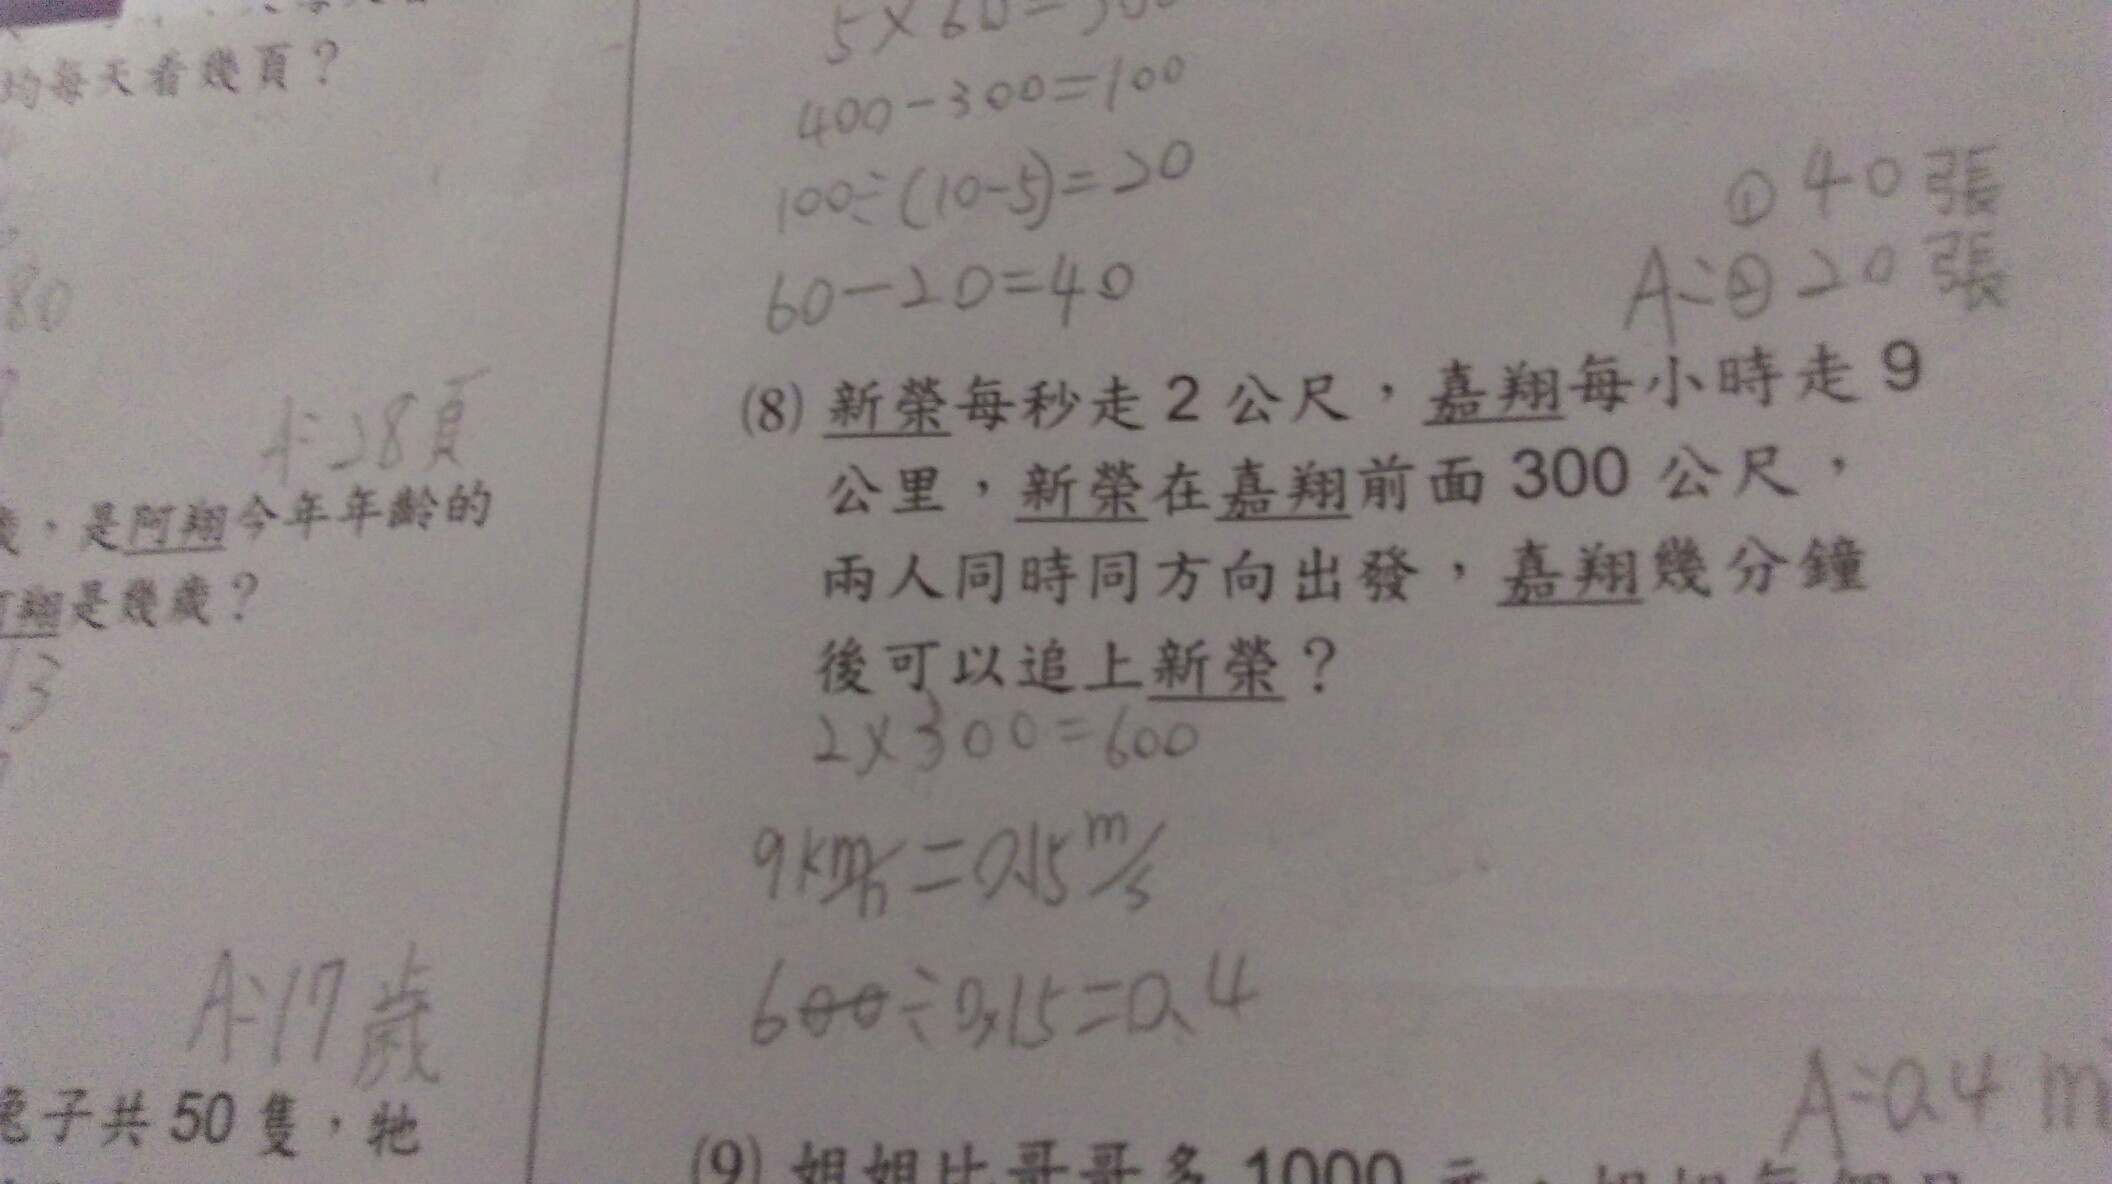 均每天看幾頁？
80
A=28頁
，是阿翔今年年齡的
翔是幾歲？
13
A=17歲
兔子共 50 隻，牠
5×60=300
400-300=100
100÷(10-5)=20
60-20=40
① 40 張
A=② 20 張
(8) 新榮每秒走 2 公尺，嘉翔每小時走 9
公里，新榮在嘉翔前面 300 公尺，
兩人同時同方向出發，嘉翔幾分鐘
後可以追上新榮？
2×300=600
9km/h=0.15m/s
600÷0.15=0.4
A=0.4 m
(9) 姐姐比哥哥多 1000 元，